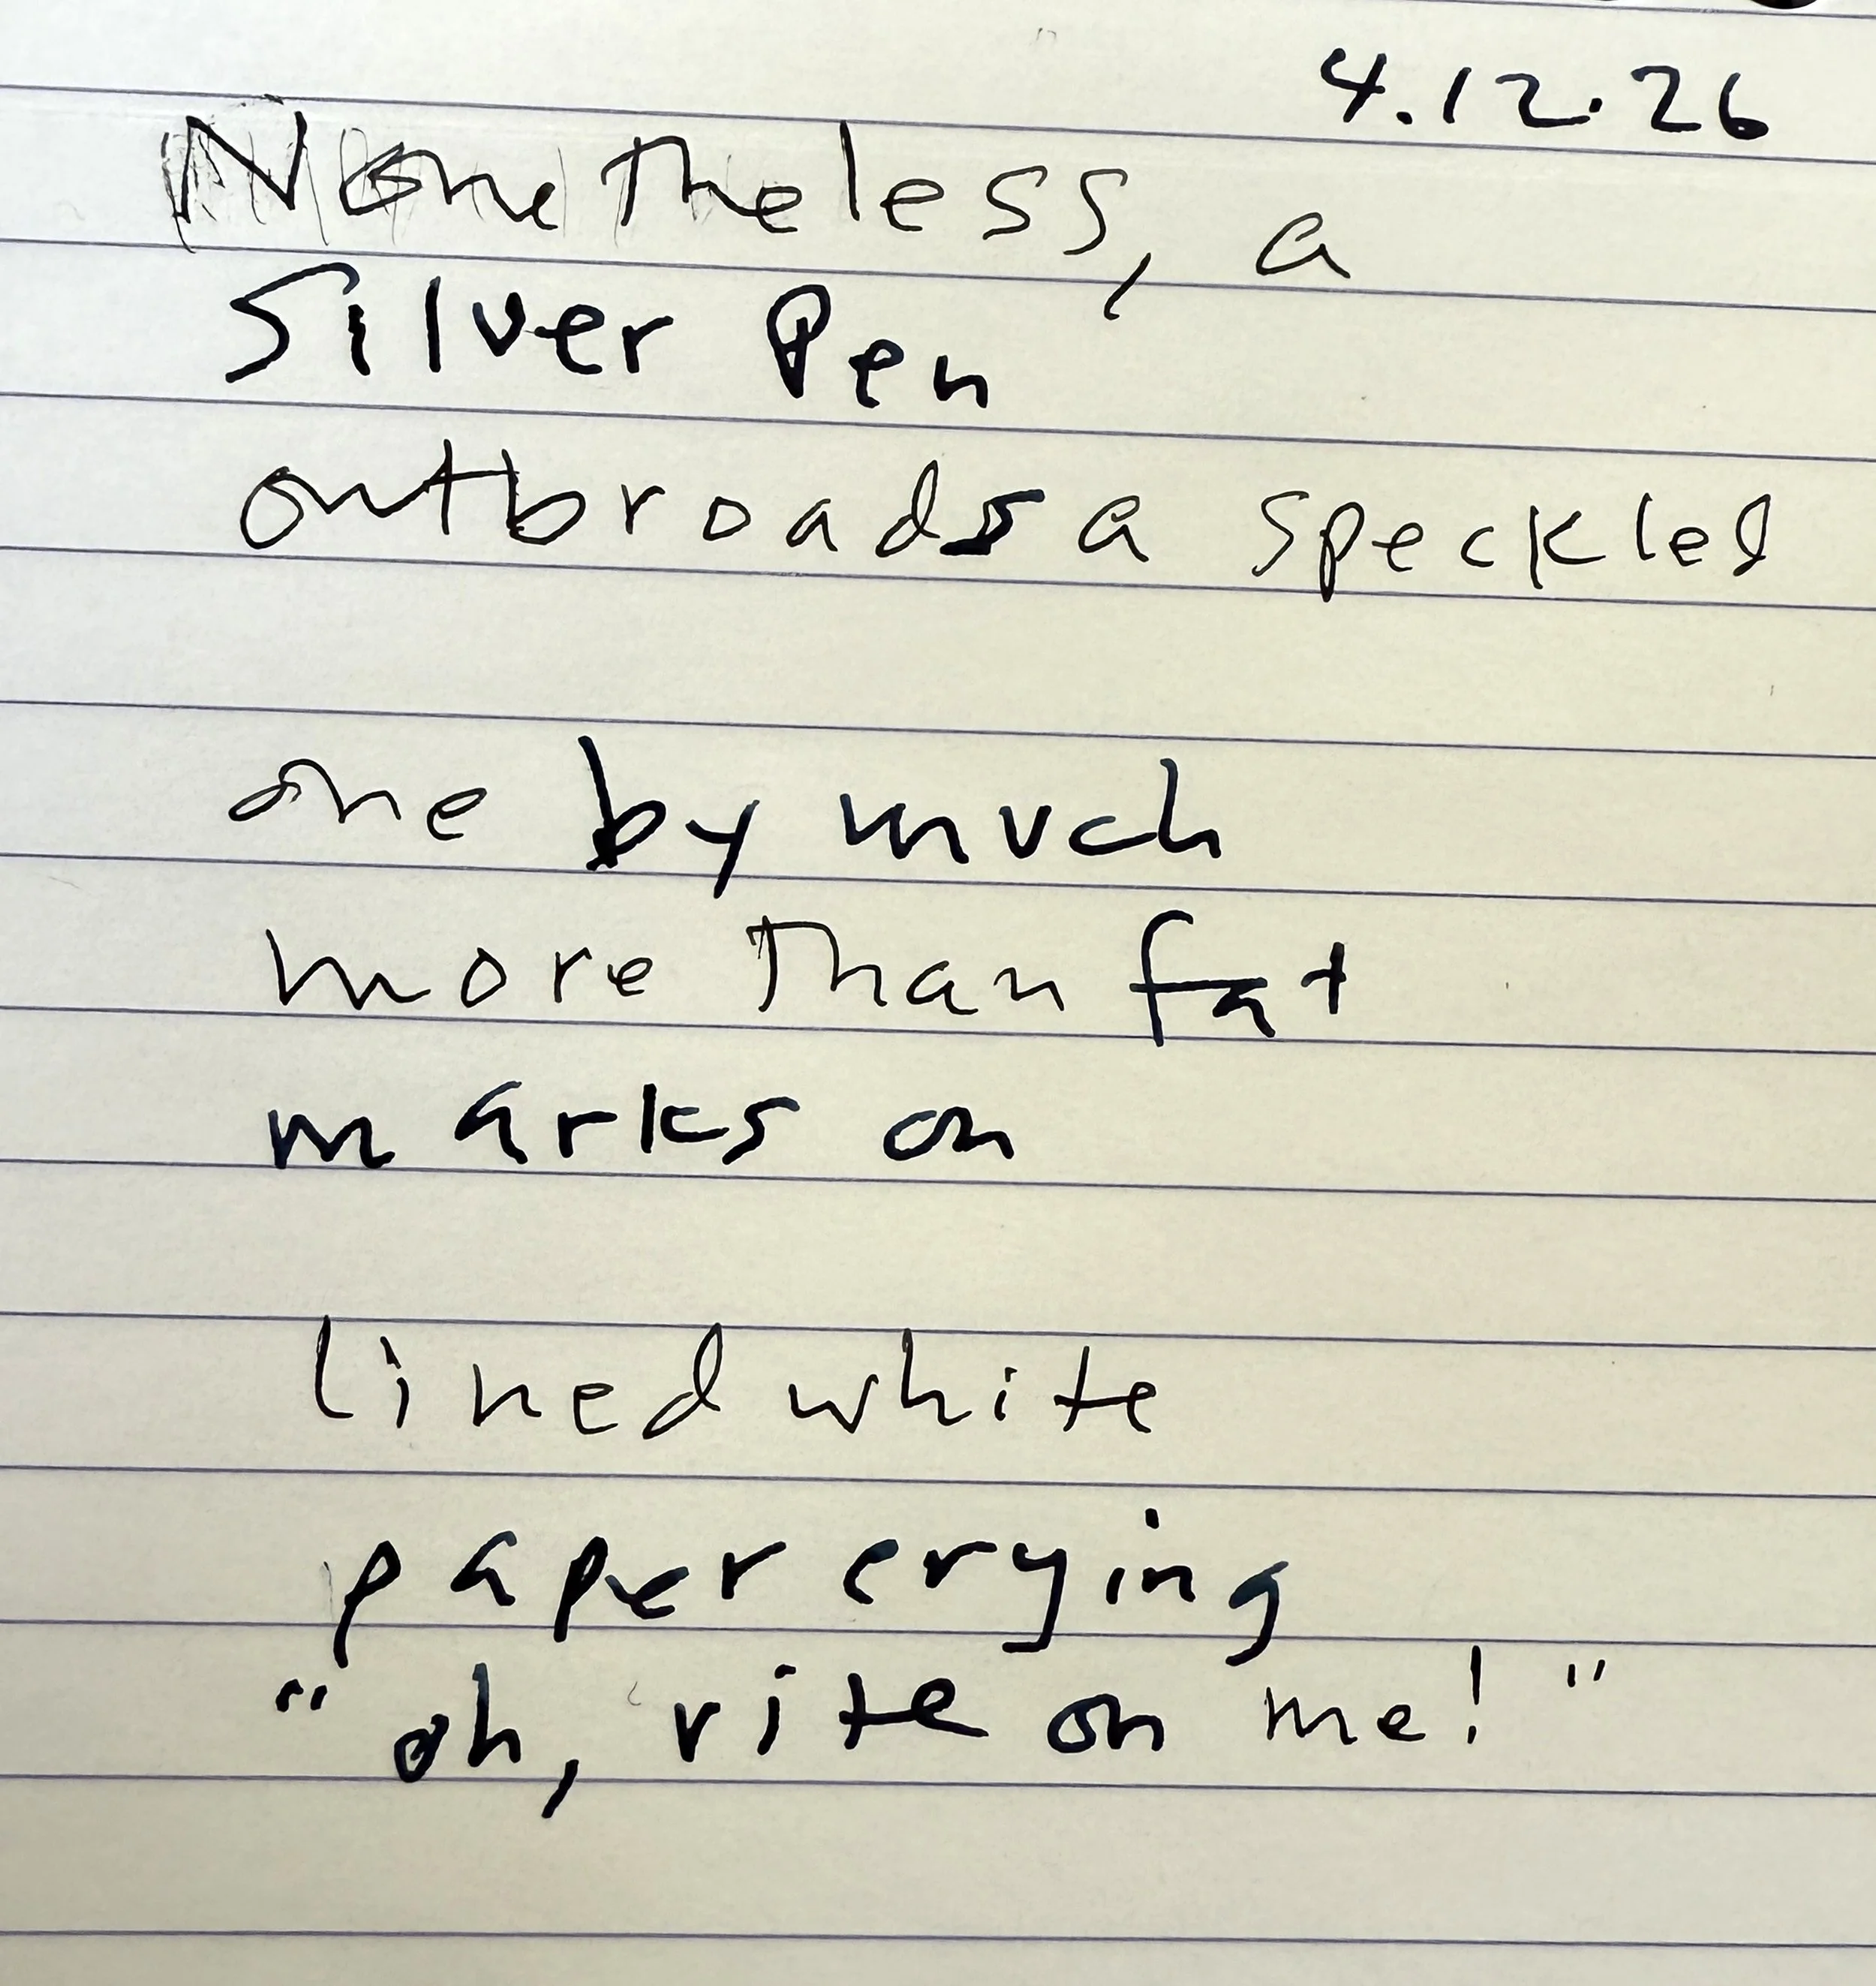 4.12.26
Nonetheless, a
Silver Pen
outbroads a speckled
one by much
more Than fat
marks on
lined white
paper crying
"oh, rite on me!"